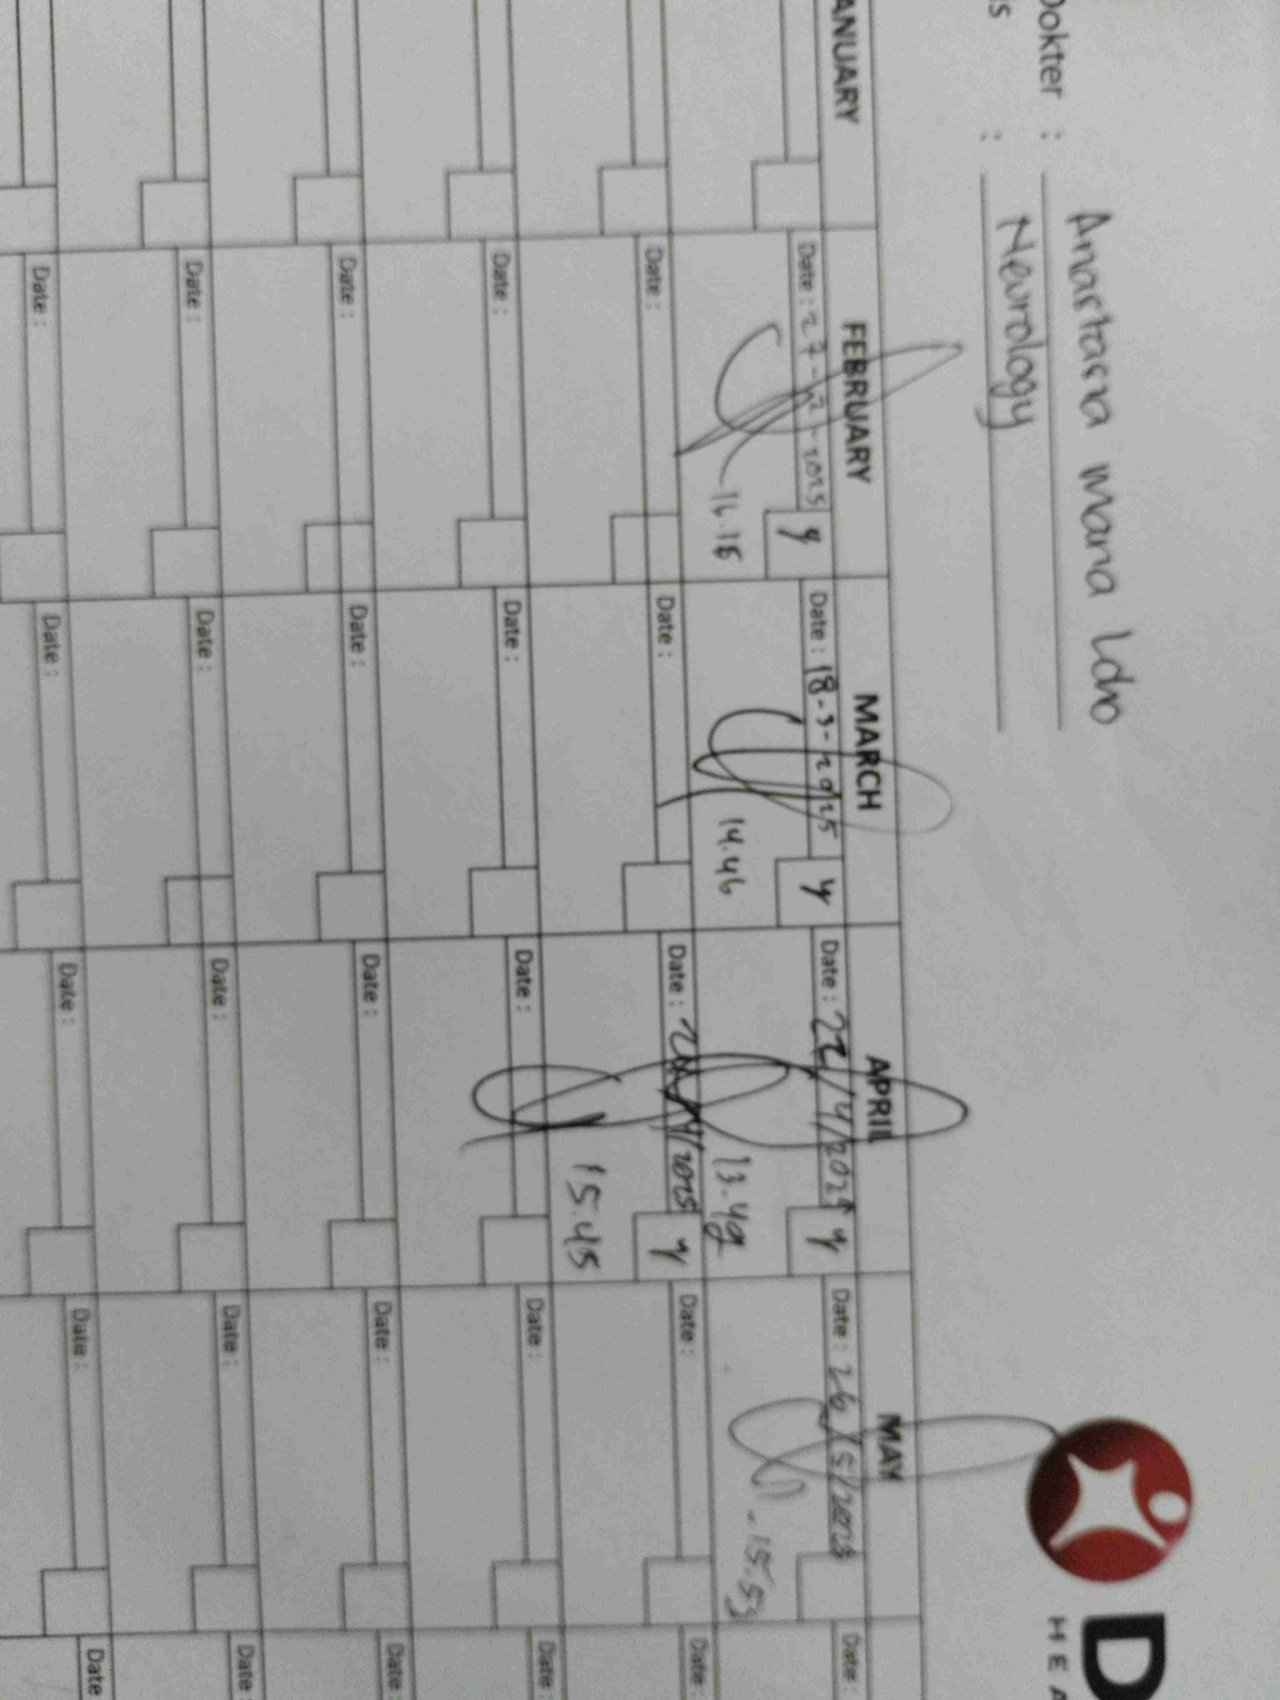 Dokter : Anastasia maria Ldro
s : Neurology
D
HEA
ANUARY FEBRUARY MARCH APRIL MAY
Date : 27-2-2025 y Date : 18-3-2025 y Date : 22/4/2025 y Date : 26/5/2025 Date :
16.18 14.46 13.49 - 15.53
Date : Date : Date : /2025 y Date : Date :
15.45
Date : Date : Date : Date : Date :
Date : Date : Date : Date : Date :
Date : Date : Date : Date : Date :
Date : Date : Date : Date : Date